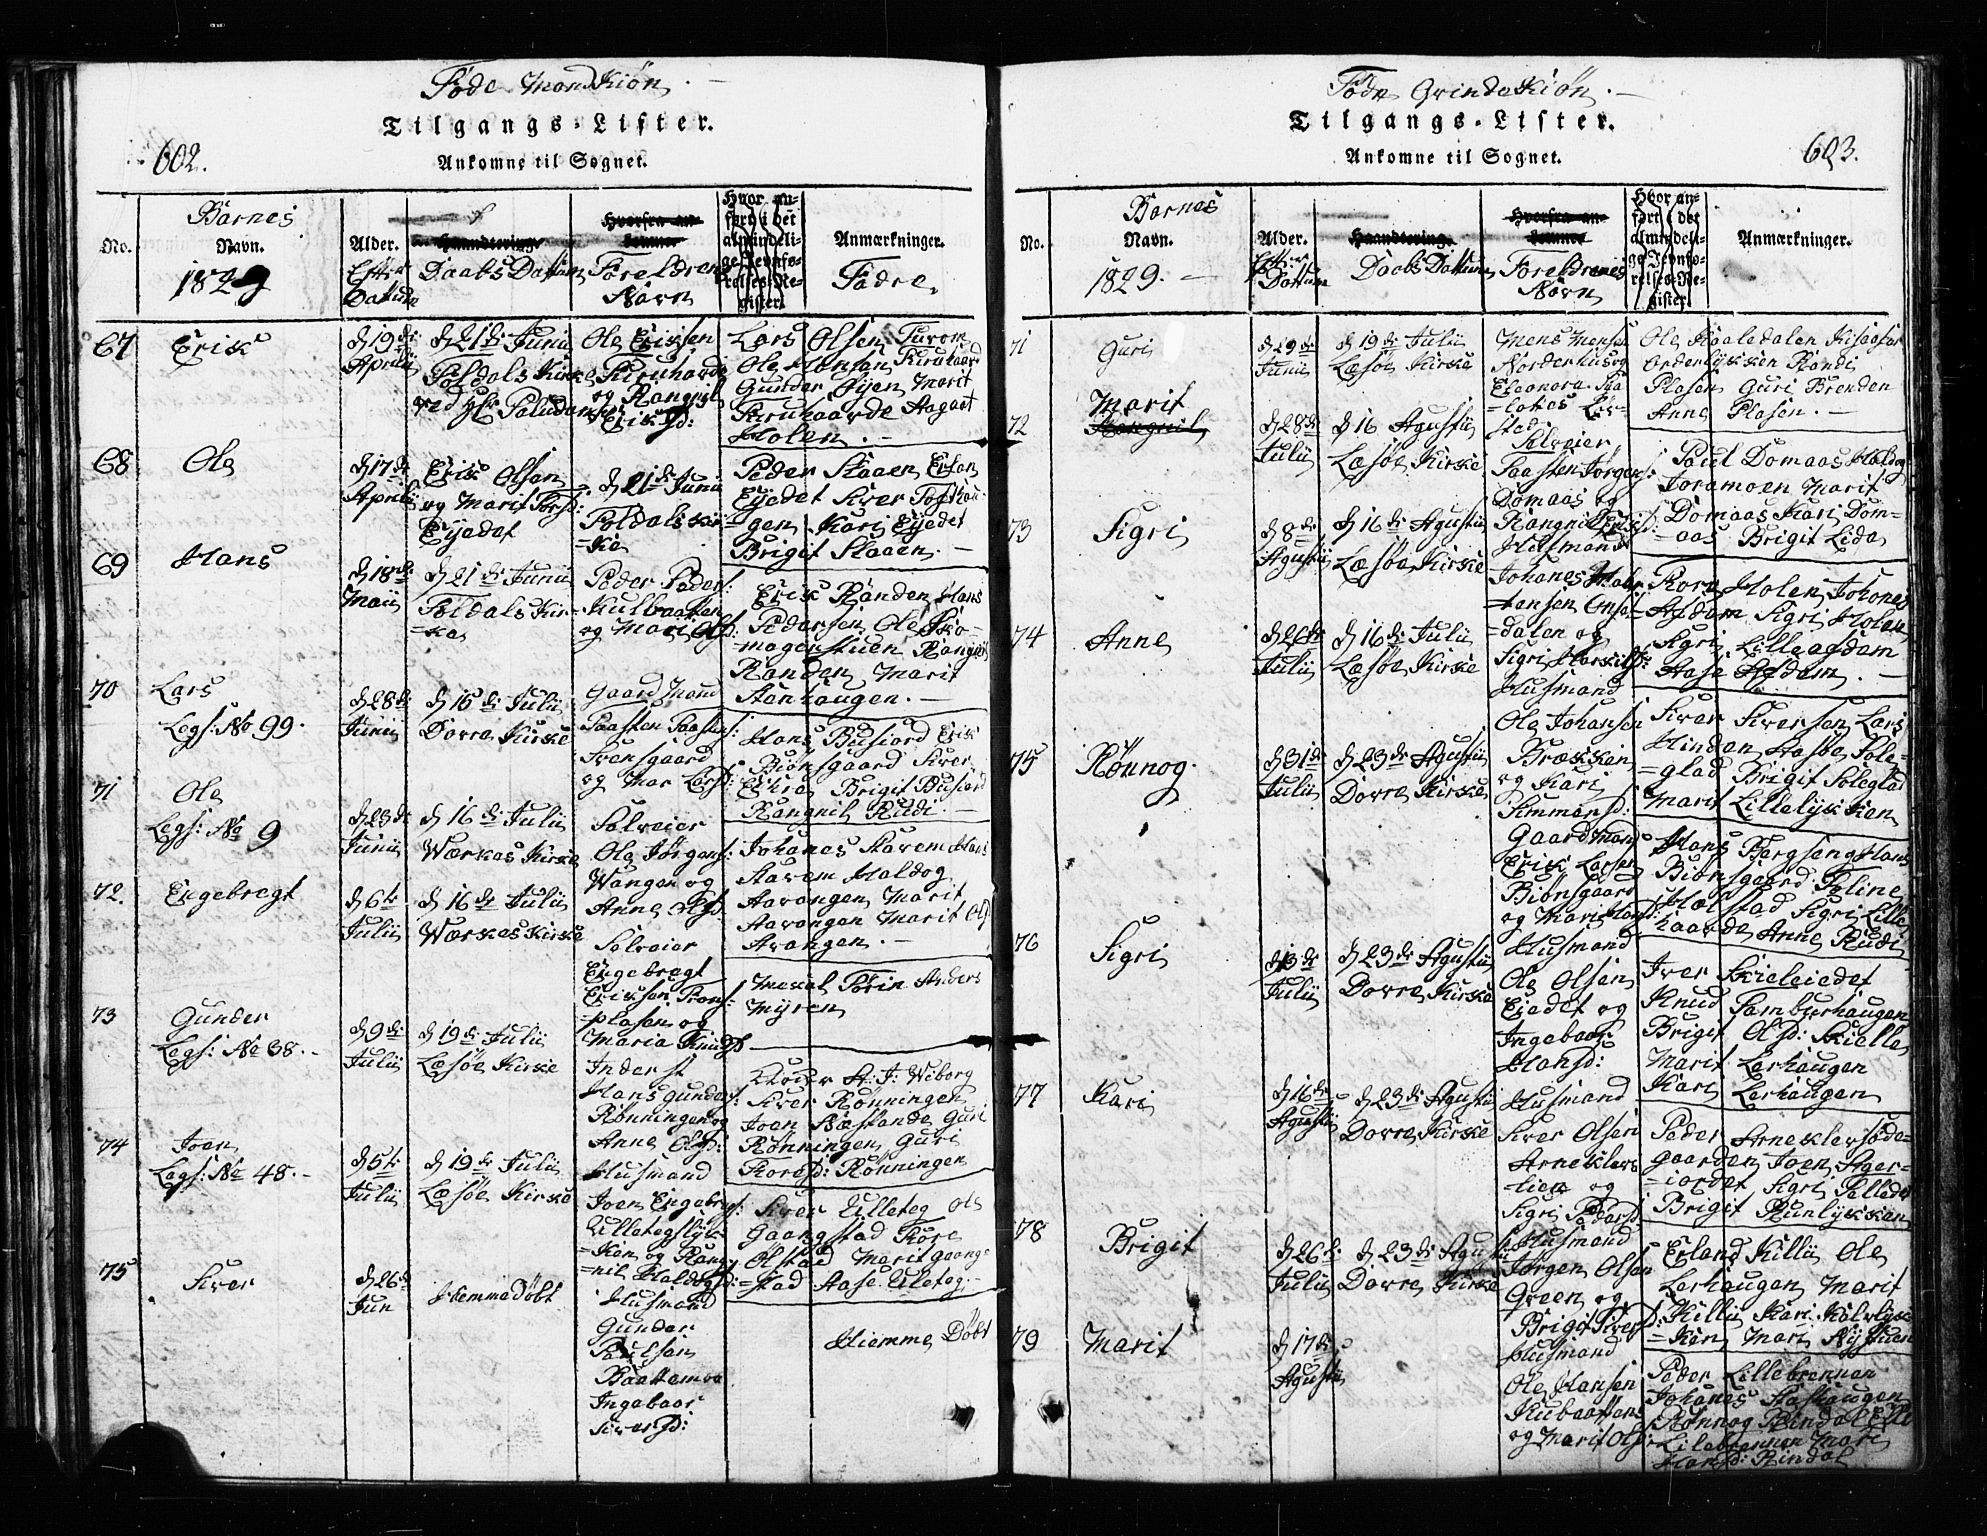 Føde MandKiøn. —
Tilgangs-Lister.
602.
Ankomne til Sognet.
No.
Barnes
Navn.
1829
Alder.
Datum
Haandtering.
Daabs Datum
Hvorfra ankommer
Foreldrenes
Navn
Hvor anført i det almindelige Jevnførelses-Register.
Anmærkninger.
Fadre.
67
Erik
d 19de
Aprilii
d 21de Junii
Foldals Kirke
ved Hr Paludan
Ole Eriksen
Furuhaarde
og Rangnil
Eriksd:
Lars Olsen Furom
Ole Monsen Furuhaard
Gunder Øyen Marit
Furuhaarde Aagaat
Holen. —
68
Ole
d 17de
Aprilii
Erik Olsen
og Marit Torsd:
Eijedet
d 21de Junii
Foldals Kir
=ke
Peder Staaen Erlan
Eijedet Siver
gen Kari Eijedet
Brigit Staaen. —
69
Hans
d 18de
Maii
d 21de Junii
Foldals Kir-
=ke
Peder Peders:
Kulbaatten
og Mari Olsd:
Erik Randen Hans
Pedersen Ole Sko-
magerstuen Rangnil
Randen Marit
Aanhaugen. —
70
Lars
Legs: No 99.
d 28de
Junii
d 16de Julii
Dovre Kirke
Gaard Mand
Paasten Paastens:
Svensgaard
og Mar Larsd:
Hans Busiord Erik
Biønsgaard Siver
Ekre Brigit Busiord
Rangnil Rudi —
71
Ole
Legs: No 9
d 23de
Junii
d 16de Julii
Værkes Kirke
Selveier
Ole Jørgens:
Vangen og
Anne Olsd:
Johanes Aavem Hans
Aavem Haldog
Aavangen Marit
Aavangen Marit Ols
Avangen. —
72.
Engebregt
d 6te
Julii
d 16de Julii
Værkes Kirke
Selveier
Engebregt
Eriksen Trons
=plasen og
Maria Knudsd
Anders
Myren
73
Gunder
Legs: No 38.
d 9de
Julii
d 19de Julii
Læsøe Kirke
Inderst
Hans Gunders:
Rønningen og
Anne Olsd:
Wiborg
Siver Rønningen
Joen Næstande Guri
Rønningen Guri
Toresd: Rønningen
74
Joen
Legs: No 48. —
d 5te
Julii
d 19de Julii
Læsøe Kirke
Husmand
Joen Engebregs:
Lilletegslyk
=ken og Rang
=nil Haldogsd:
Siver Lilleteg Ole
Gaangstad Tore
Olstad Marit Gaang
=stad Aase Lilleteg. —
75
Siver
d 26de
Jun
Hemmedøbt
Husmand
Gunder
Paulsen
Baattemoe
Ingebaar
Siversd:
Hiemme Døbt
Føde QvindeKiøn. —
Tilgangs-Lister.
603.
Ankomne til Sognet.
No.
Barnes
Navn.
1829. —
Alder.
Dattum
Haandtering.
Daabs Dattum
Hvorfra ankommer
Foreldrenes
Navn
Hvor anført i det almindelige Jevnførelses-Register.
Anmærkninger.
71
Guri
d 29de
Junii
d 19de Julii
Læsøe Kirke
Mons Monsen
Norderhus og
Eleonora
Ole Kaalsdalen
Enderlykken Randi
Plasen Guri Brenden
Anne Plasen. —
72
Marit
Rangnil
d 28de
Julii
d 16 Agustii
Læsøe Kirke
Selveier
Paasten Jørgens:
Domaas og
Rangnil Eriksd:
Paul Domaas Haldog
Joramoen Marit
Domaas Kari Dom=
=aas Brigit Lide
73
Sigri
d 8de
Agustii
d 16de Agustii
Læsøe Kirke
Husmand
Johanes
=dalen og
Sigri
Tore Holen Johanes
Afdem Sigri Holen
Sigri Lilleafdem
Aase Afdem. —
74
Anne
d 26de
Julii
d 16de Julii
Læsøe Kirke
Husmand
Ole Johansen
Brækken
og Kari
Simmensd:
Siver Siversen Lars
Hinden Aasøe Sole=
=glad Brigit Soleglad
Marit Lillelykken
75
Rønnog.
d 31de
Julii
d 23de Agustii
Dovre Kirke
Gaard Mand
Erik Larsen
Biønsgaard
og Mari
Hans Bergseng Hans
Biønsgaard
Sigri Lille
Anne Rudi
76
Sigri
d 13de
Julii
d 23de Agustii
Dovre Kirke
Husmand
Ole Olsen
Eiedet og
Ingebaar
Hansd:
Iver Skieleiedet
Knud Lambjørhaugen
Brigit Olsd: Skielle
Marit Lerhaugen
Kari Lerhaugen
77
Kari
d 16de
Agustii
d 23de Agustii
Dovre Kirke
Husmand
Siver Olsen
Arneklevs
lien og
Sigri Pedersd:
Peder Arneklevsøde=
gaarden Joen Ager=
=iordet Sigri
Brigit Runlykken
78
Brigit
d 26de
Julii
d 23de Agustii
Dovre Kirke
Husmand
Jørgen Olsen
Green og
Brigit Siversd:
Erland Killii Ole
Lerhaugen Marit
Killii Kari Kalvlyk
=ken Mari Nystuen
79
Marit
d 17de
Agustii
Husmand
Ole Hansen
Kubaattens
og Marit Olsd:
Peder Lillebrennen
Johanes Aashaugen
Rønnog Rindal
Lilebrennen Mari
Hansd: Rindal